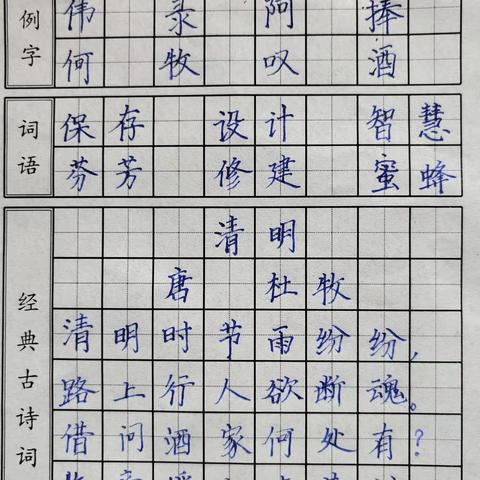 例字
伟 录 阿 捧
何 牧 叹 酒
词语
保存 设计 智慧
芬芳 修建 蜜蜂
经典古诗词
清明
唐 杜牧
清明时节雨纷纷，
路上行人欲断魂。
借问酒家何处有？